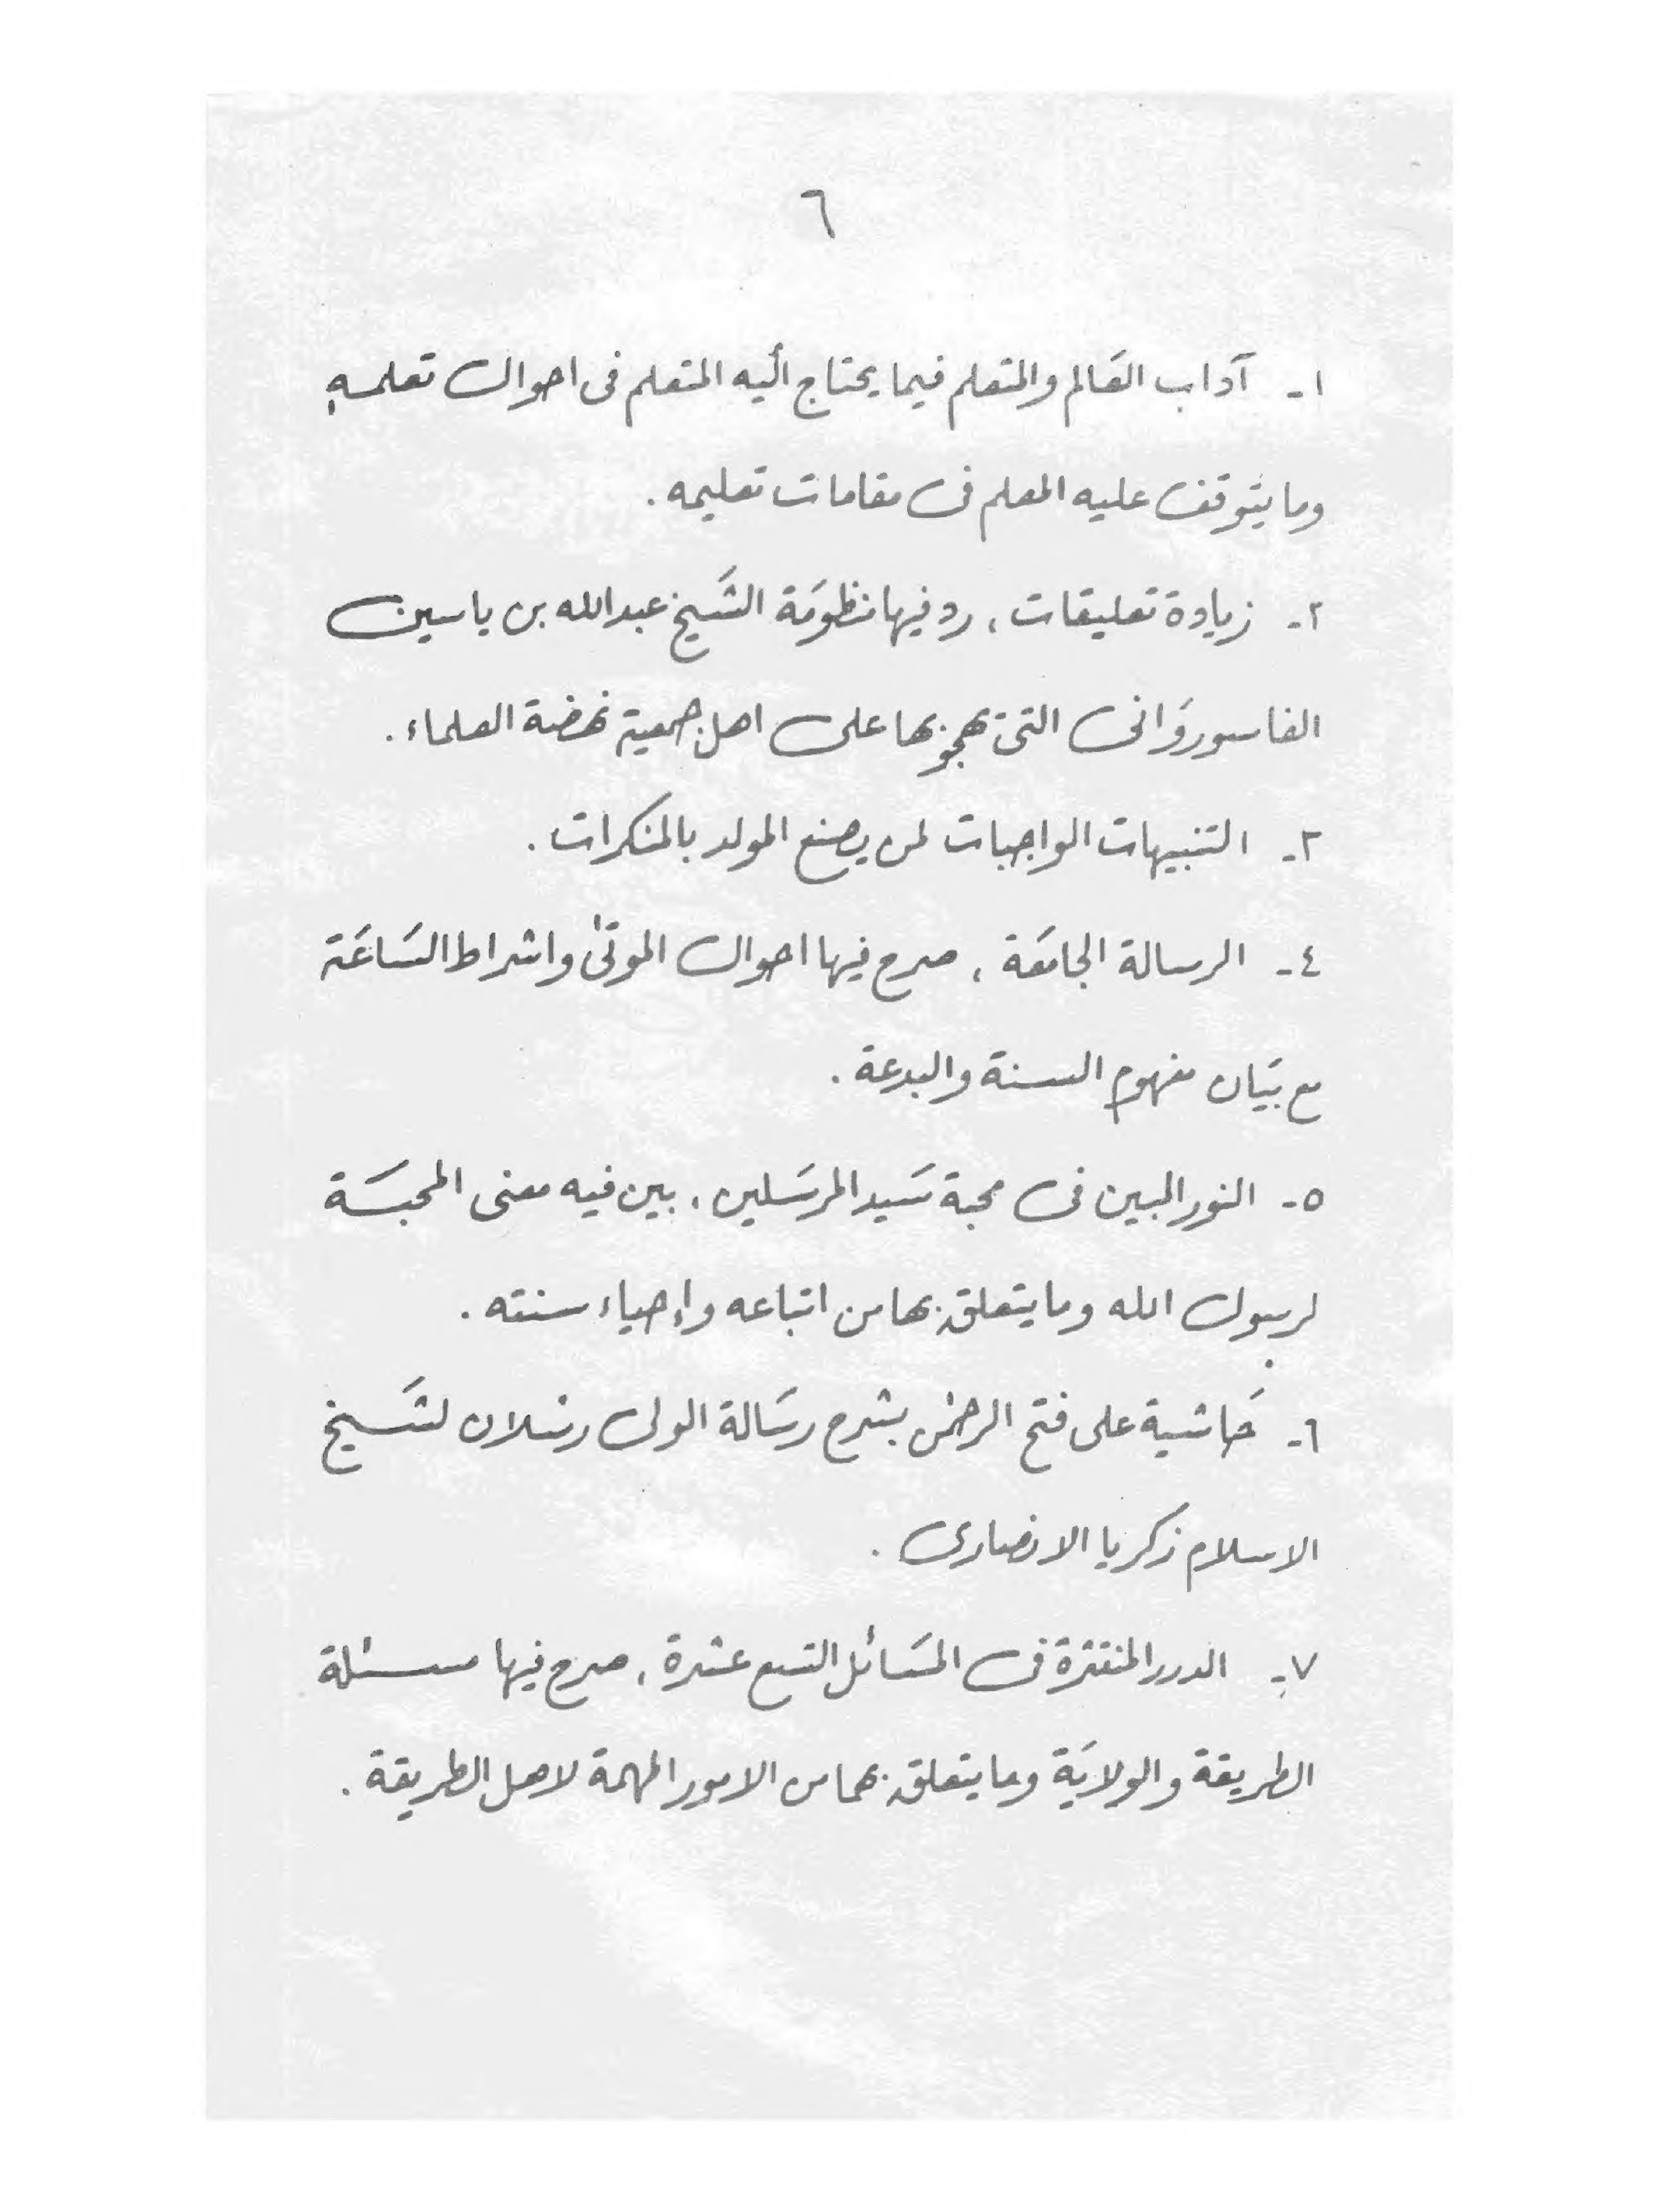 ٦
١- آداب العَالم والمتعلم فيما يحتاج أليه المتعلم فى احوال تعلمه
وما يتوقف عليه المعلم فى مقامات تعليمه .
٢- زيادة تعليقات ، رد فيها منظومَة الشَيخ عبدالله بن ياسين
الفاسوروَانى التى يهجو بها على اهل جمعية نهضة العلماء .
٣- التنبيهات الواجبات لمن يصنع المولد بالمنكرات .
٤- الرسالة الجامَعة ، صرح فيها احوال الموتىٰ واشراط السَاعَة
مع بيَان مفهوم السنة والبدعة .
٥- النور المبين فى محبة سَيد المرسَلين ، بين فيه معنى المحبَـة
لرسول الله وما يتعلق بها من اتباعه وإحياء سنته .
٦- حَاشية على فتح الرحمٰن بشرح رسَالة الولى رسلان لشَـيخ
الاسلام زكريا الانصارى .
٧- الدرر المنتثرة فى المسَائل التسع عشرة ، صرح فيها مسـئلة
الطريقة والولايَة وما يتعلق بهما من الامور المهمة لاهل الطريقة .